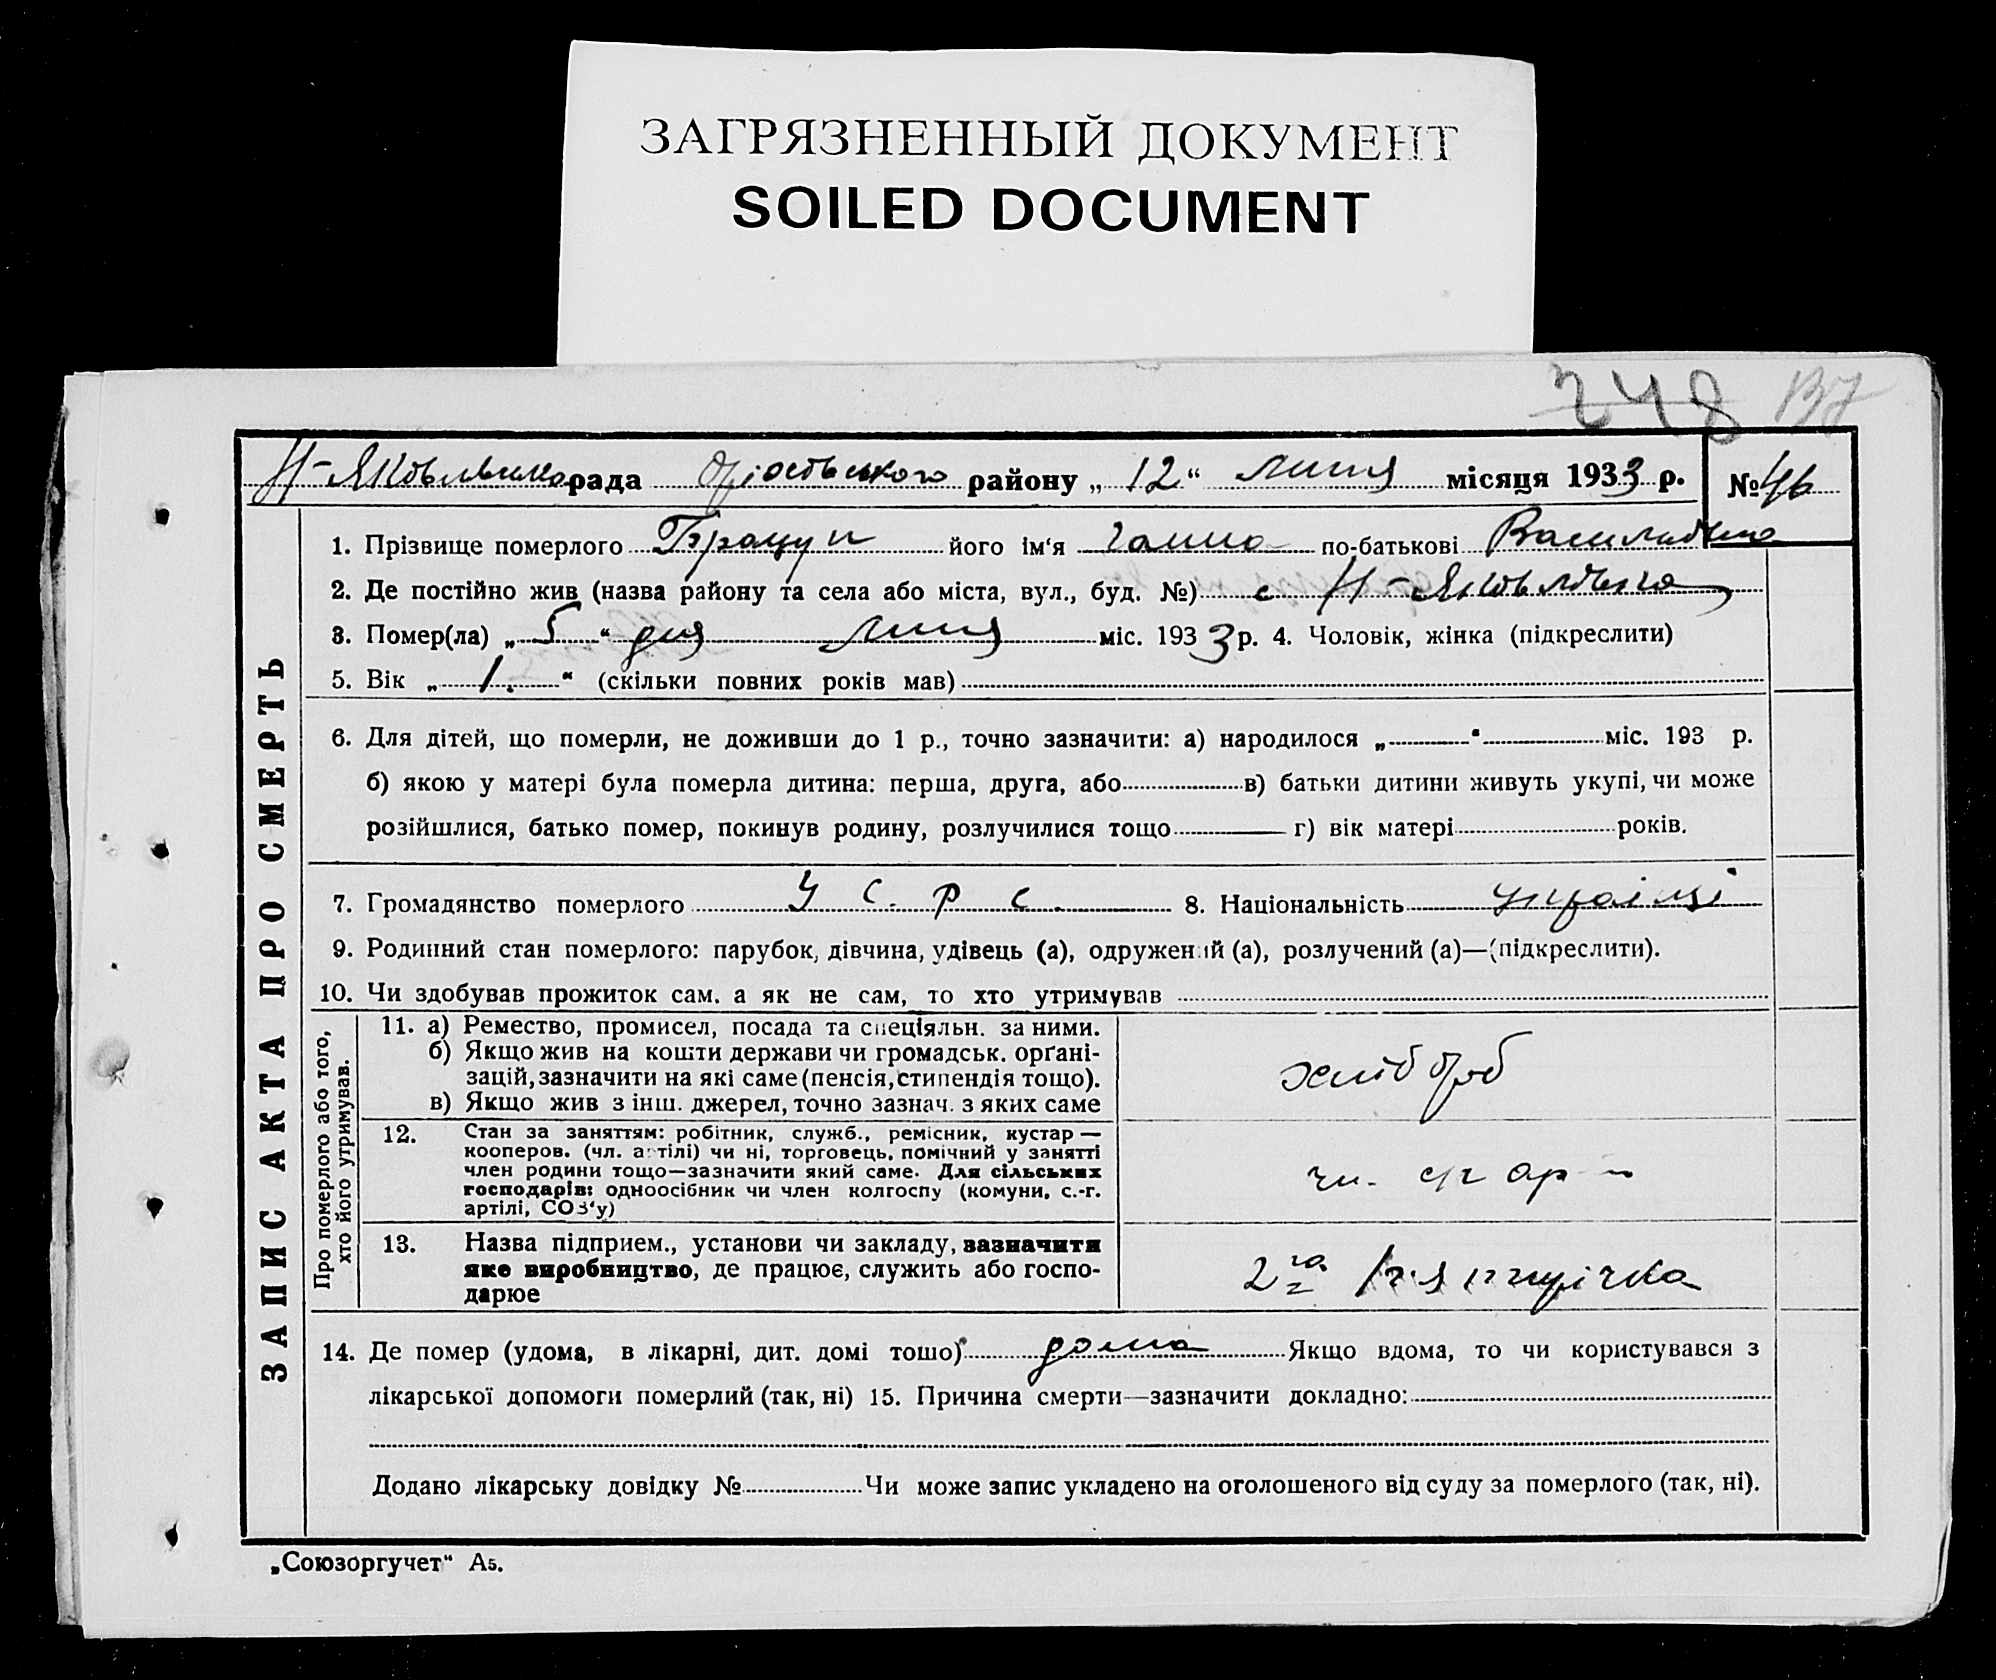 ЗАГРЯЗНЕННЫЙ ДОКУМЕНТ
SOILED DOCUMENT
248 137
Н-Яковлівська рада Оріхівського району „12“ липня місяця 1933 р. № 46
ЗАПИС АКТА ПРО СМЕРТЬ
1. Прізвище померлого його ім‘я Ганна по-батькові Василівна
2. Де постійно жив (назва району та села або міста, вул., буд. №) с Н-Яковлівка
3. Помер(ла) „5“ дня липня міс. 1933 р. 4. Чоловік, жінка (підкреслити)
5. Вік „1.“ (скільки повних років мав)
6. Для дітей, що померли, не доживши до 1 р., точно зазначити: а) народилося „ “ міс. 193 р.
б) якою у матері була померла дитина: перша, друга, або в) батьки дитини живуть укупі, чи може
розійшлися, батько помер, покинув родину, розлучилися тощо г) вік матері років.
7. Громадянство померлого У С. Р С. 8. Національність
9. Родинний стан померлого: парубок, дівчина, удівець (а), одружений (а), розлучений (а)—(підкреслити).
10. Чи здобував прожиток сам. а як не сам, то хто утримував
Про померлого або того,
хто його утримував.
11. а) Ремество, промисел, посада та спеціяльн. за ними.
б) Якщо жив на кошти держави чи громадськ. орґані-
зацій, зазначити на які саме (пенсія, стипендія тощо).
в) Якщо жив з інш. джерел, точно зазнач. з яких саме
хлібороб
12. Стан за заняттям: робітник, служб., ремісник, кустар —
кооперов. (чл. артілі) чи ні, торговець, помічний у занятті
член родини тощо—зазначити який саме. Для сільських
господарів: одноосібник чи член колгоспу (комуни, с.-г.
артілі, СОЗ‘у)
13. Назва підприєм., установи чи закладу, зазначити
яке виробництво, де працює, служить або госпо-
дарює
2га П'ятирічка
14. Де помер (удома, в лікарні, дит. домі тошо) дома Якщо вдома, то чи користувався з
лікарської допомоги померлий (так, ні) 15. Причина смерти—зазначити докладно:
Додано лікарську довідку № Чи може запис укладено на оголошеного від суду за померлого (так, ні).
„Союзоргучет“ А5.